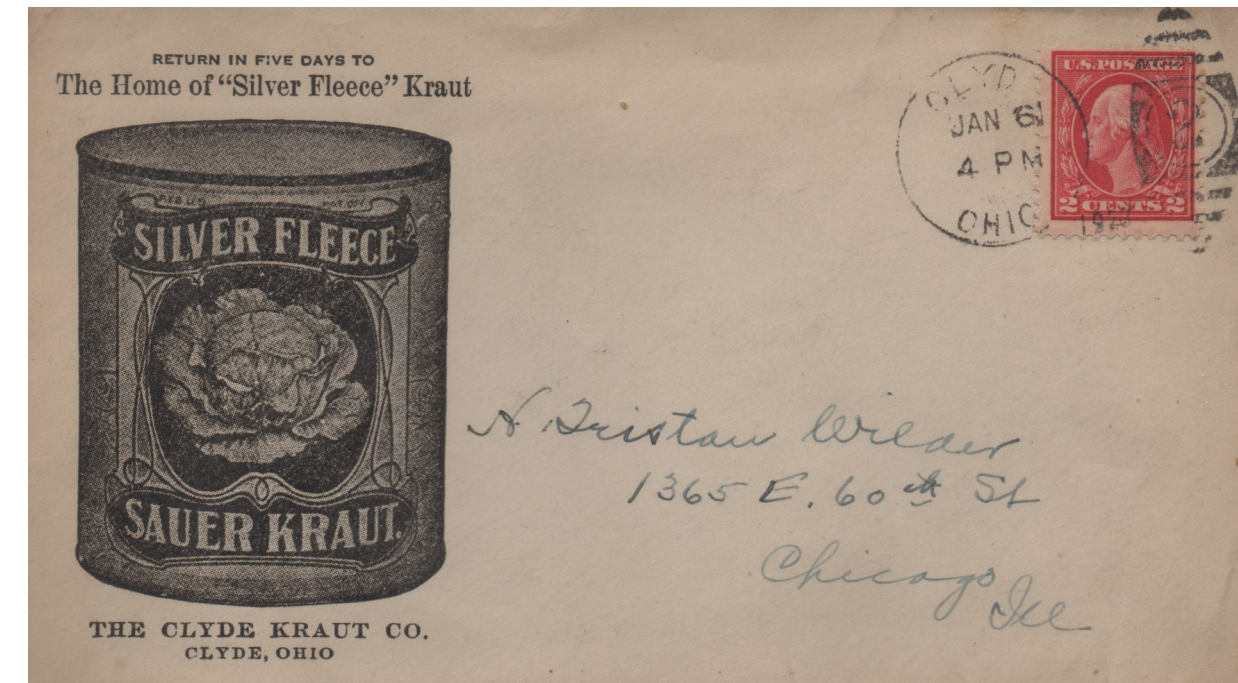 RETURN IN FIVE DAYS TO
The Home of "Silver Fleece" Kraut
REG. U.S. PAT. OFF.
SILVER FLEECE
SAUER KRAUT.
THE CLYDE KRAUT CO.
CLYDE, OHIO
CLYDE
JAN 6
4 PM
OHIO
U.S. POSTAGE
2 CENTS 2
N. Tristan Wilder
1365 E. 60th St
Chicago
Ill